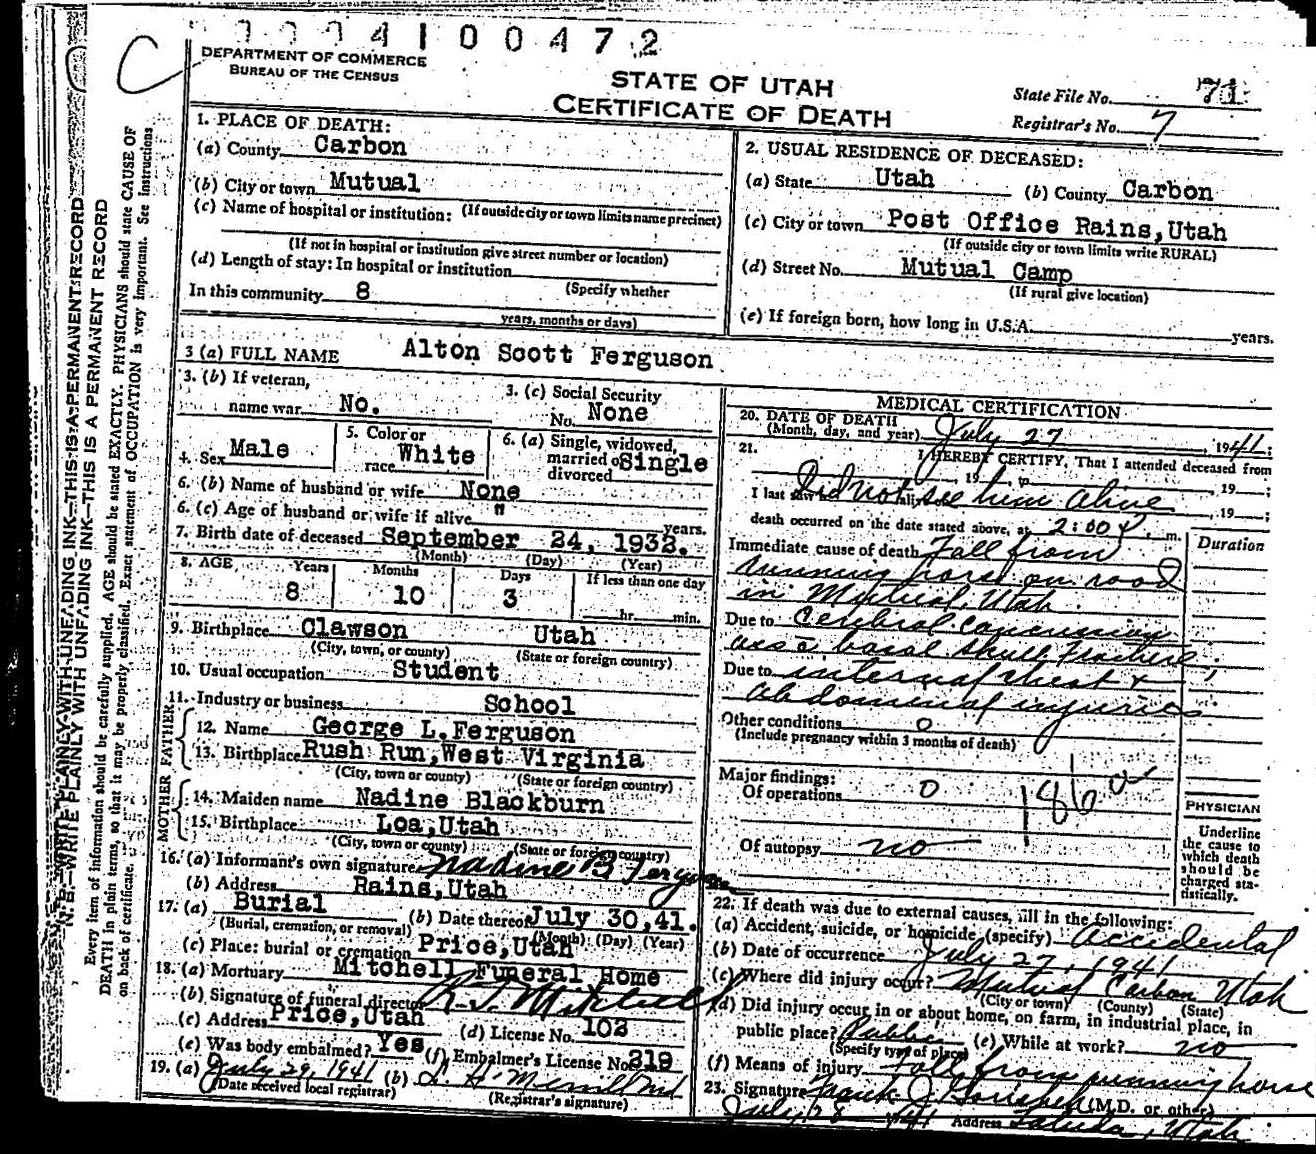 41 00472
C
DEPARTMENT OF COMMERCE
BUREAU OF THE CENSUS
STATE OF UTAH
CERTIFICATE OF DEATH
State File No. 71
Registrar's No. 7
N. B.—WRITE PLAINLY WITH UNFADING INK—THIS IS A PERMANENT RECORD
Every item of information should be carefully supplied. AGE should be stated EXACTLY. PHYSICIANS should state CAUSE OF
DEATH in plain terms, so that it may be properly classified. Exact statement of OCCUPATION is very important. See instructions
on back of certificate.
1. PLACE OF DEATH:
(a) County Carbon
(b) City or town Mutual
(c) Name of hospital or institution: (If outside city or town limits name precinct)
(If not in hospital or institution give street number or location)
(d) Length of stay: In hospital or institution
(Specify whether
In this community 8
years, months or days)
2. USUAL RESIDENCE OF DECEASED:
(a) State Utah (b) County Carbon
(c) City or town Post Office Rains, Utah
(If outside city or town limits write RURAL)
(d) Street No. Mutual Camp
(If rural give location)
(e) If foreign born, how long in U.S.A. years.
3 (a) FULL NAME Alton Scott Ferguson
3. (b) If veteran,
name war No.
3. (c) Social Security
No. None
4. Sex Male
5. Color or
race White
6. (a) Single, widowed,
married or Single
divorced
6. (b) Name of husband or wife None
6. (c) Age of husband or wife if alive " years.
7. Birth date of deceased September 24, 1932.
(Month) (Day) (Year)
8. AGE Years Months Days If less than one day
8 10 3 hr. min.
9. Birthplace Clawson Utah
(City, town, or county) (State or foreign country)
10. Usual occupation Student
11. Industry or business School
FATHER
12. Name George L. Ferguson
13. Birthplace Rush Run, West Virginia
(City, town or county) (State or foreign country)
MOTHER
14. Maiden name Nadine Blackburn
15. Birthplace Loa, Utah
(City, town or county) (State or foreign country)
16. (a) Informant's own signature Nadine B Ferguson
(b) Address Rains, Utah
17. (a) Burial (b) Date thereof July 30, 41.
(Burial, cremation, or removal) (Month) (Day) (Year)
(c) Place: burial or cremation Price, Utah
18. (a) Mortuary Mitchell Funeral Home
(b) Signature of funeral director Mitchell
(c) Address Price, Utah (d) License No. 102
(e) Was body embalmed? Yes (f) Embalmer's License No. 219
19. (a) July 29, 1941 (b)
(Date received local registrar) (Registrar's signature)
MEDICAL CERTIFICATION
20. DATE OF DEATH
(Month, day, and year) July 27, 1941;
21. I HEREBY CERTIFY, That I attended deceased from
, 19 , to , 19 ;
I last saw h alive Did not see him alive , 19 ;
death occurred on the date stated above, at 2:00 P. m.
Immediate cause of death Fall from
running horse on road
in Mutual, Utah.
Due to Cerebral concussion
basal skull fracture;
Due to internal chest &
abdominal injuries
Duration
Other conditions 0
(Include pregnancy within 3 months of death)
Major findings:
Of operations 0
186a
Of autopsy no
PHYSICIAN
Underline
the cause to
which death
should be
charged sta-
tistically.
22. If death was due to external causes, fill in the following:
(a) Accident, suicide, or homicide (specify) Accidental
(b) Date of occurrence July 27, 1941
(c) Where did injury occur? Mutual Carbon Utah
(City or town) (County) (State)
(d) Did injury occur in or about home, on farm, in industrial place, in
public place? Public (e) While at work? no
(Specify type of place)
(f) Means of injury Fall from running horse
23. Signature Frank J (M.D. or other)
July 28 1941 Address Utah